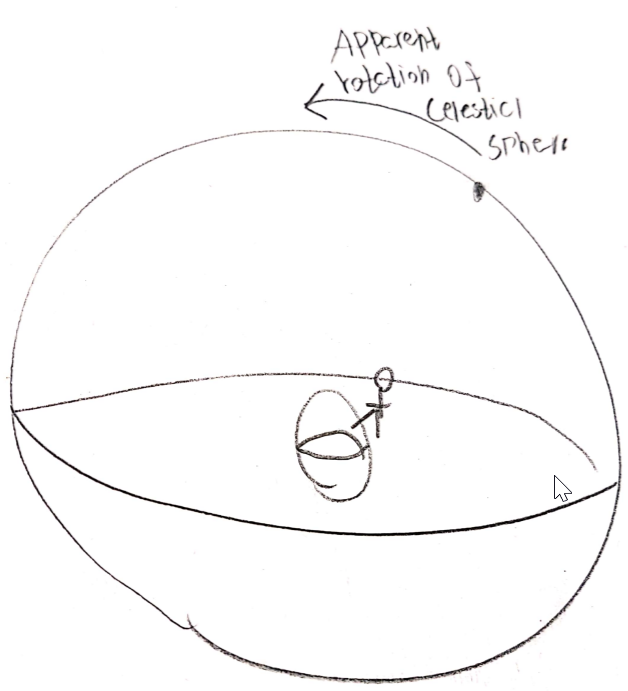 Apparent
rotation of
Celestial
Sphere